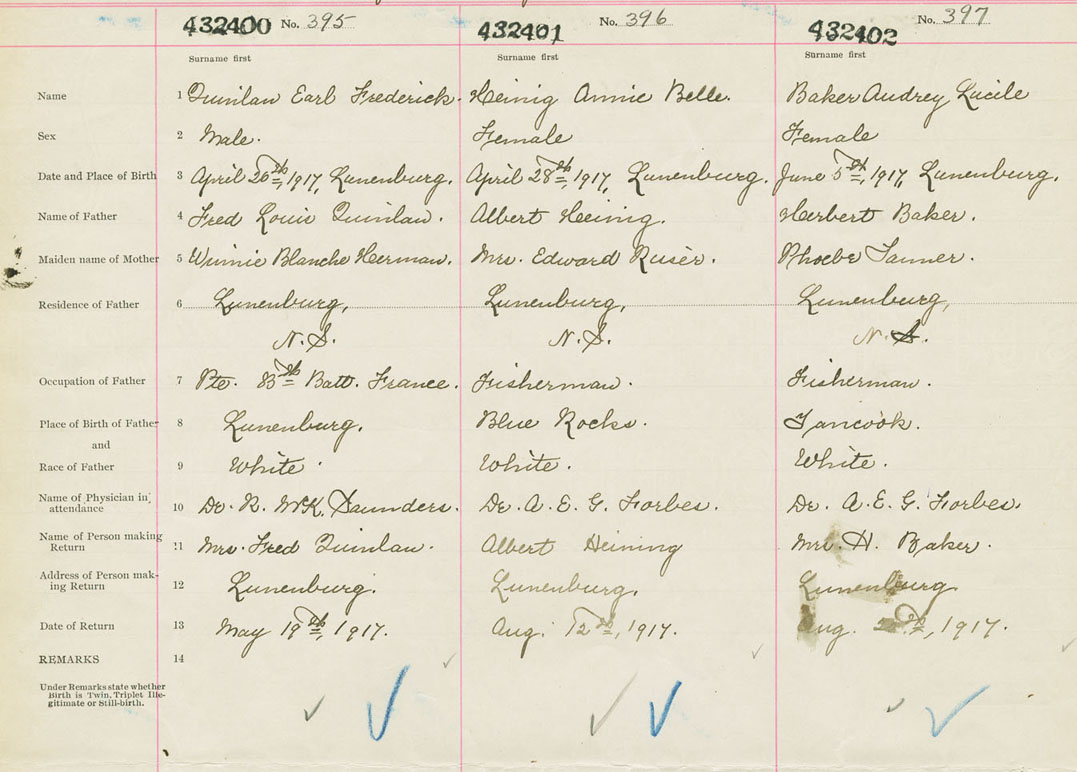 432400 No. 395 432401 No. 396 432402 No. 397
Surname first Surname first Surname first
Name 1 Quinlan Earl Frederick. Heinig Annie Belle. Baker Audrey Lucile
Sex 2 Male. Female Female
Date and Place of Birth 3 April 26th, 1917, Lunenburg. April 28th, 1917, Lunenburg. June 5th, 1917, Lunenburg.
Name of Father 4 Fred Louis Quinlan. Albert Heinig. Herbert Baker.
Maiden name of Mother 5 Winnie Blanche Herman. Mrs. Edward Phoebe Tanner.
Residence of Father 6 Lunenburg, Lunenburg, Lunenburg,
N.S. N.S. N.S.
Occupation of Father 7 Pte. 85th Batt. France. Fisherman. Fisherman.
Place of Birth of Father 8 Lunenburg. Blue Rocks. Tancook.
and
Race of Father 9 White White. White.
Name of Physician in
attendance 10 Dr. R. McK. Saunders. Dr. A. E. G. Forbes. Dr. A. E. G. Forbes.
Name of Person making
Return 11 Mrs. Fred Quinlan. Albert Heining Mrs. H. Baker.
Address of Person mak-
ing Return 12 Lunenburg. Lunenburg. Lunenburg
Date of Return 13 May 19th, 1917. Aug. 12th, 1917. Aug. 1917.
REMARKS 14
Under Remarks state whether
Birth is Twin, Triplet Ille-
gitimate or Still-birth.